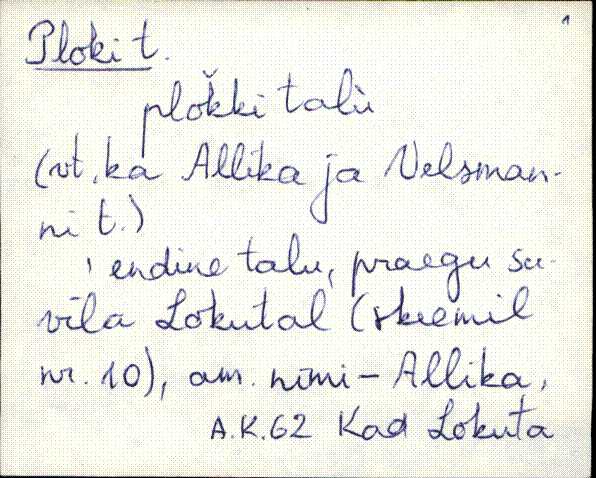 1
Ploki t.
plok̆ki talù
(vt. ka Allika ja Velsman-
ni t.)
' endine talu, praegu su-
vila Lokutal (skeemil
nr. 10), am. nimi - Allika.
A.K.62 Kad Lokuta